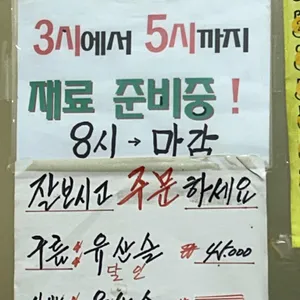 3시에서 5시까지
재료 준비중!
8시 → 마감
잘보시고 주문하세요
구름: 유산슬 ₩45.000
달인